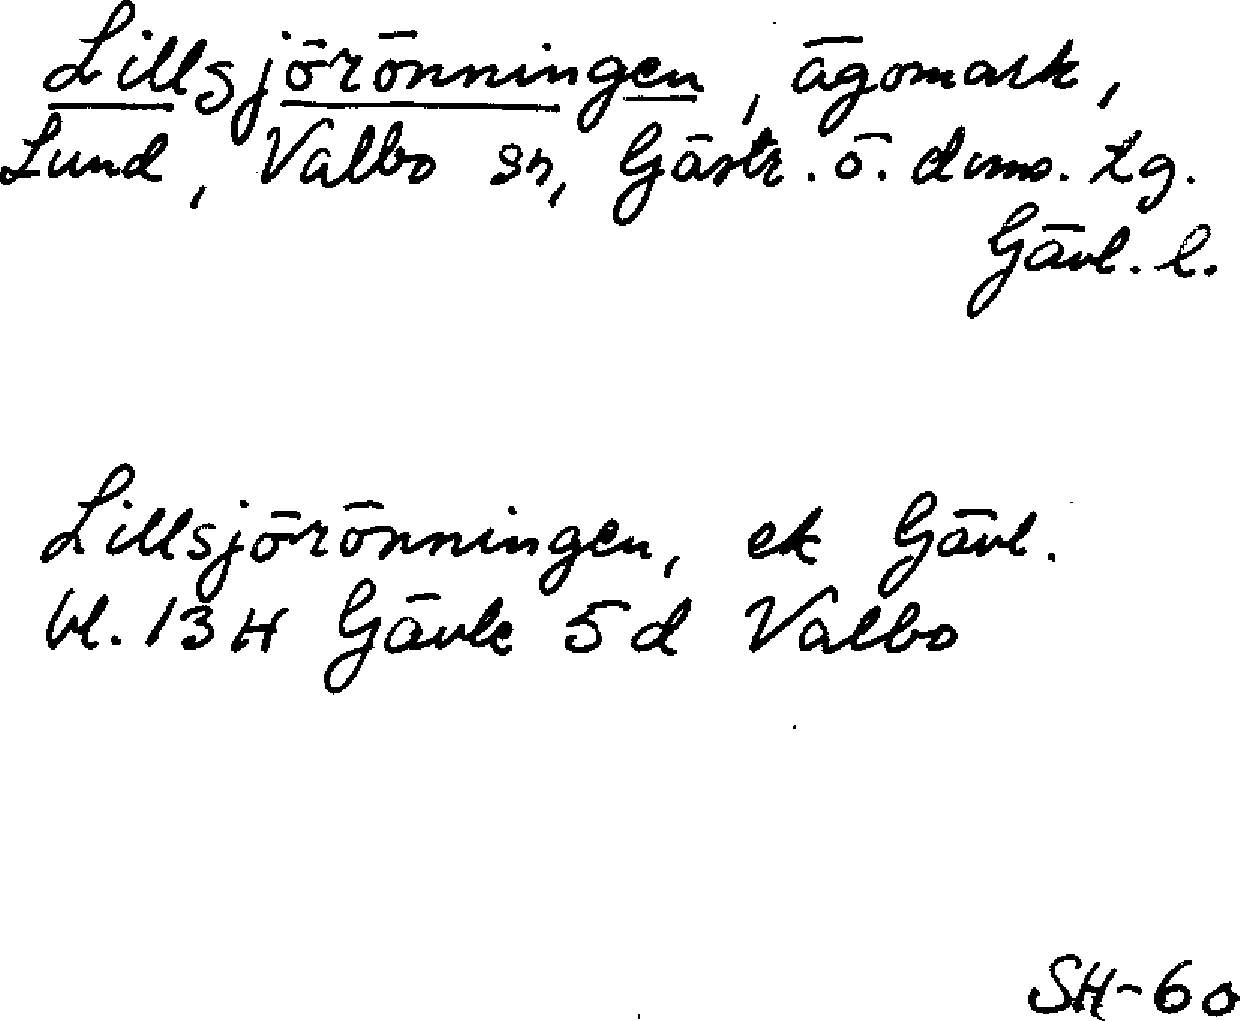 Lillsjörönningen, ägomark,
Lund, Valbo sn, Gästr. ö. dms. tg.
Gävl. l.
Lillsjörönningen, ek Gävl.
bl. 13H Gävle 5d Valbo
SH-60